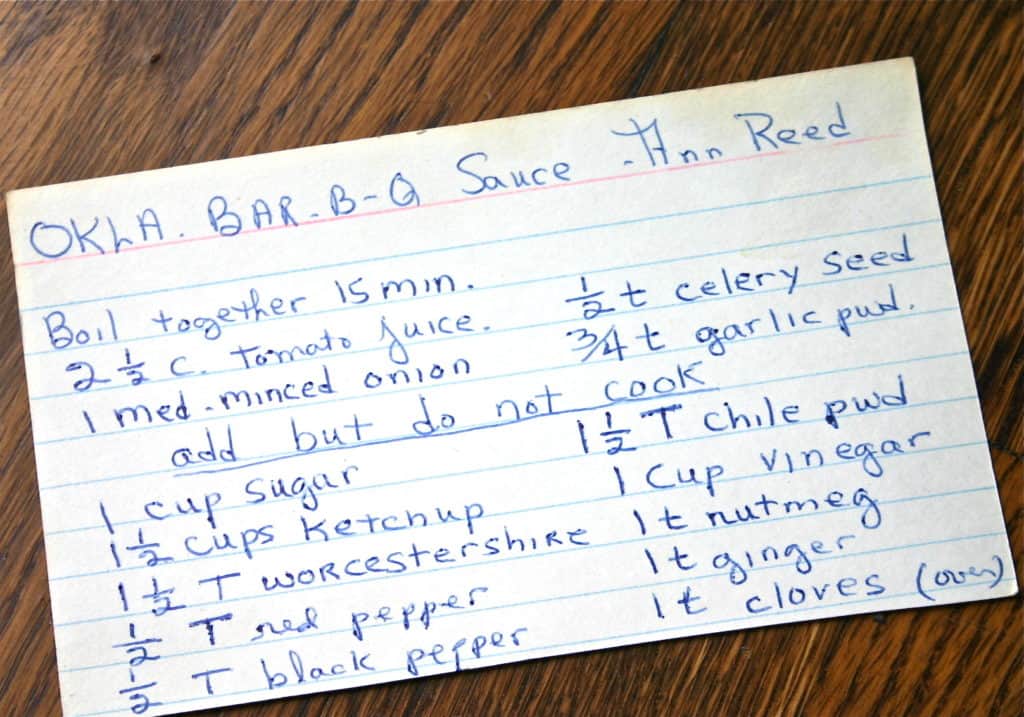 OKLA. BAR-B-Q Sauce - Ann Reed
Boil together 15 min.
2 1/2 c. tomato juice. 1/2 t celery seed
1 med. minced onion 3/4 t garlic pwd.
add but do not cook
1 cup sugar 1 1/2 T chile pwd
1 1/2 cups ketchup 1 cup vinegar
1 1/2 T worcestershire 1 t nutmeg
1/2 T red pepper 1 t ginger
1/2 T black pepper 1 t cloves (over)